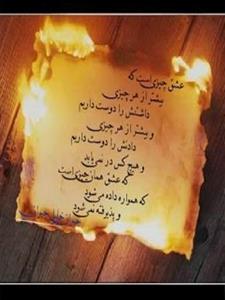 عشق چیزی است که
بیشتر از هر چیزی
داشتنش را دوست داریم
و بیشتر از هر چیزی
دادنش را دوست داریم
و هیچ کس در نمی یابد
که عشق همان چیزی است
که همواره داده می شود
و پذیرفته نمی شود